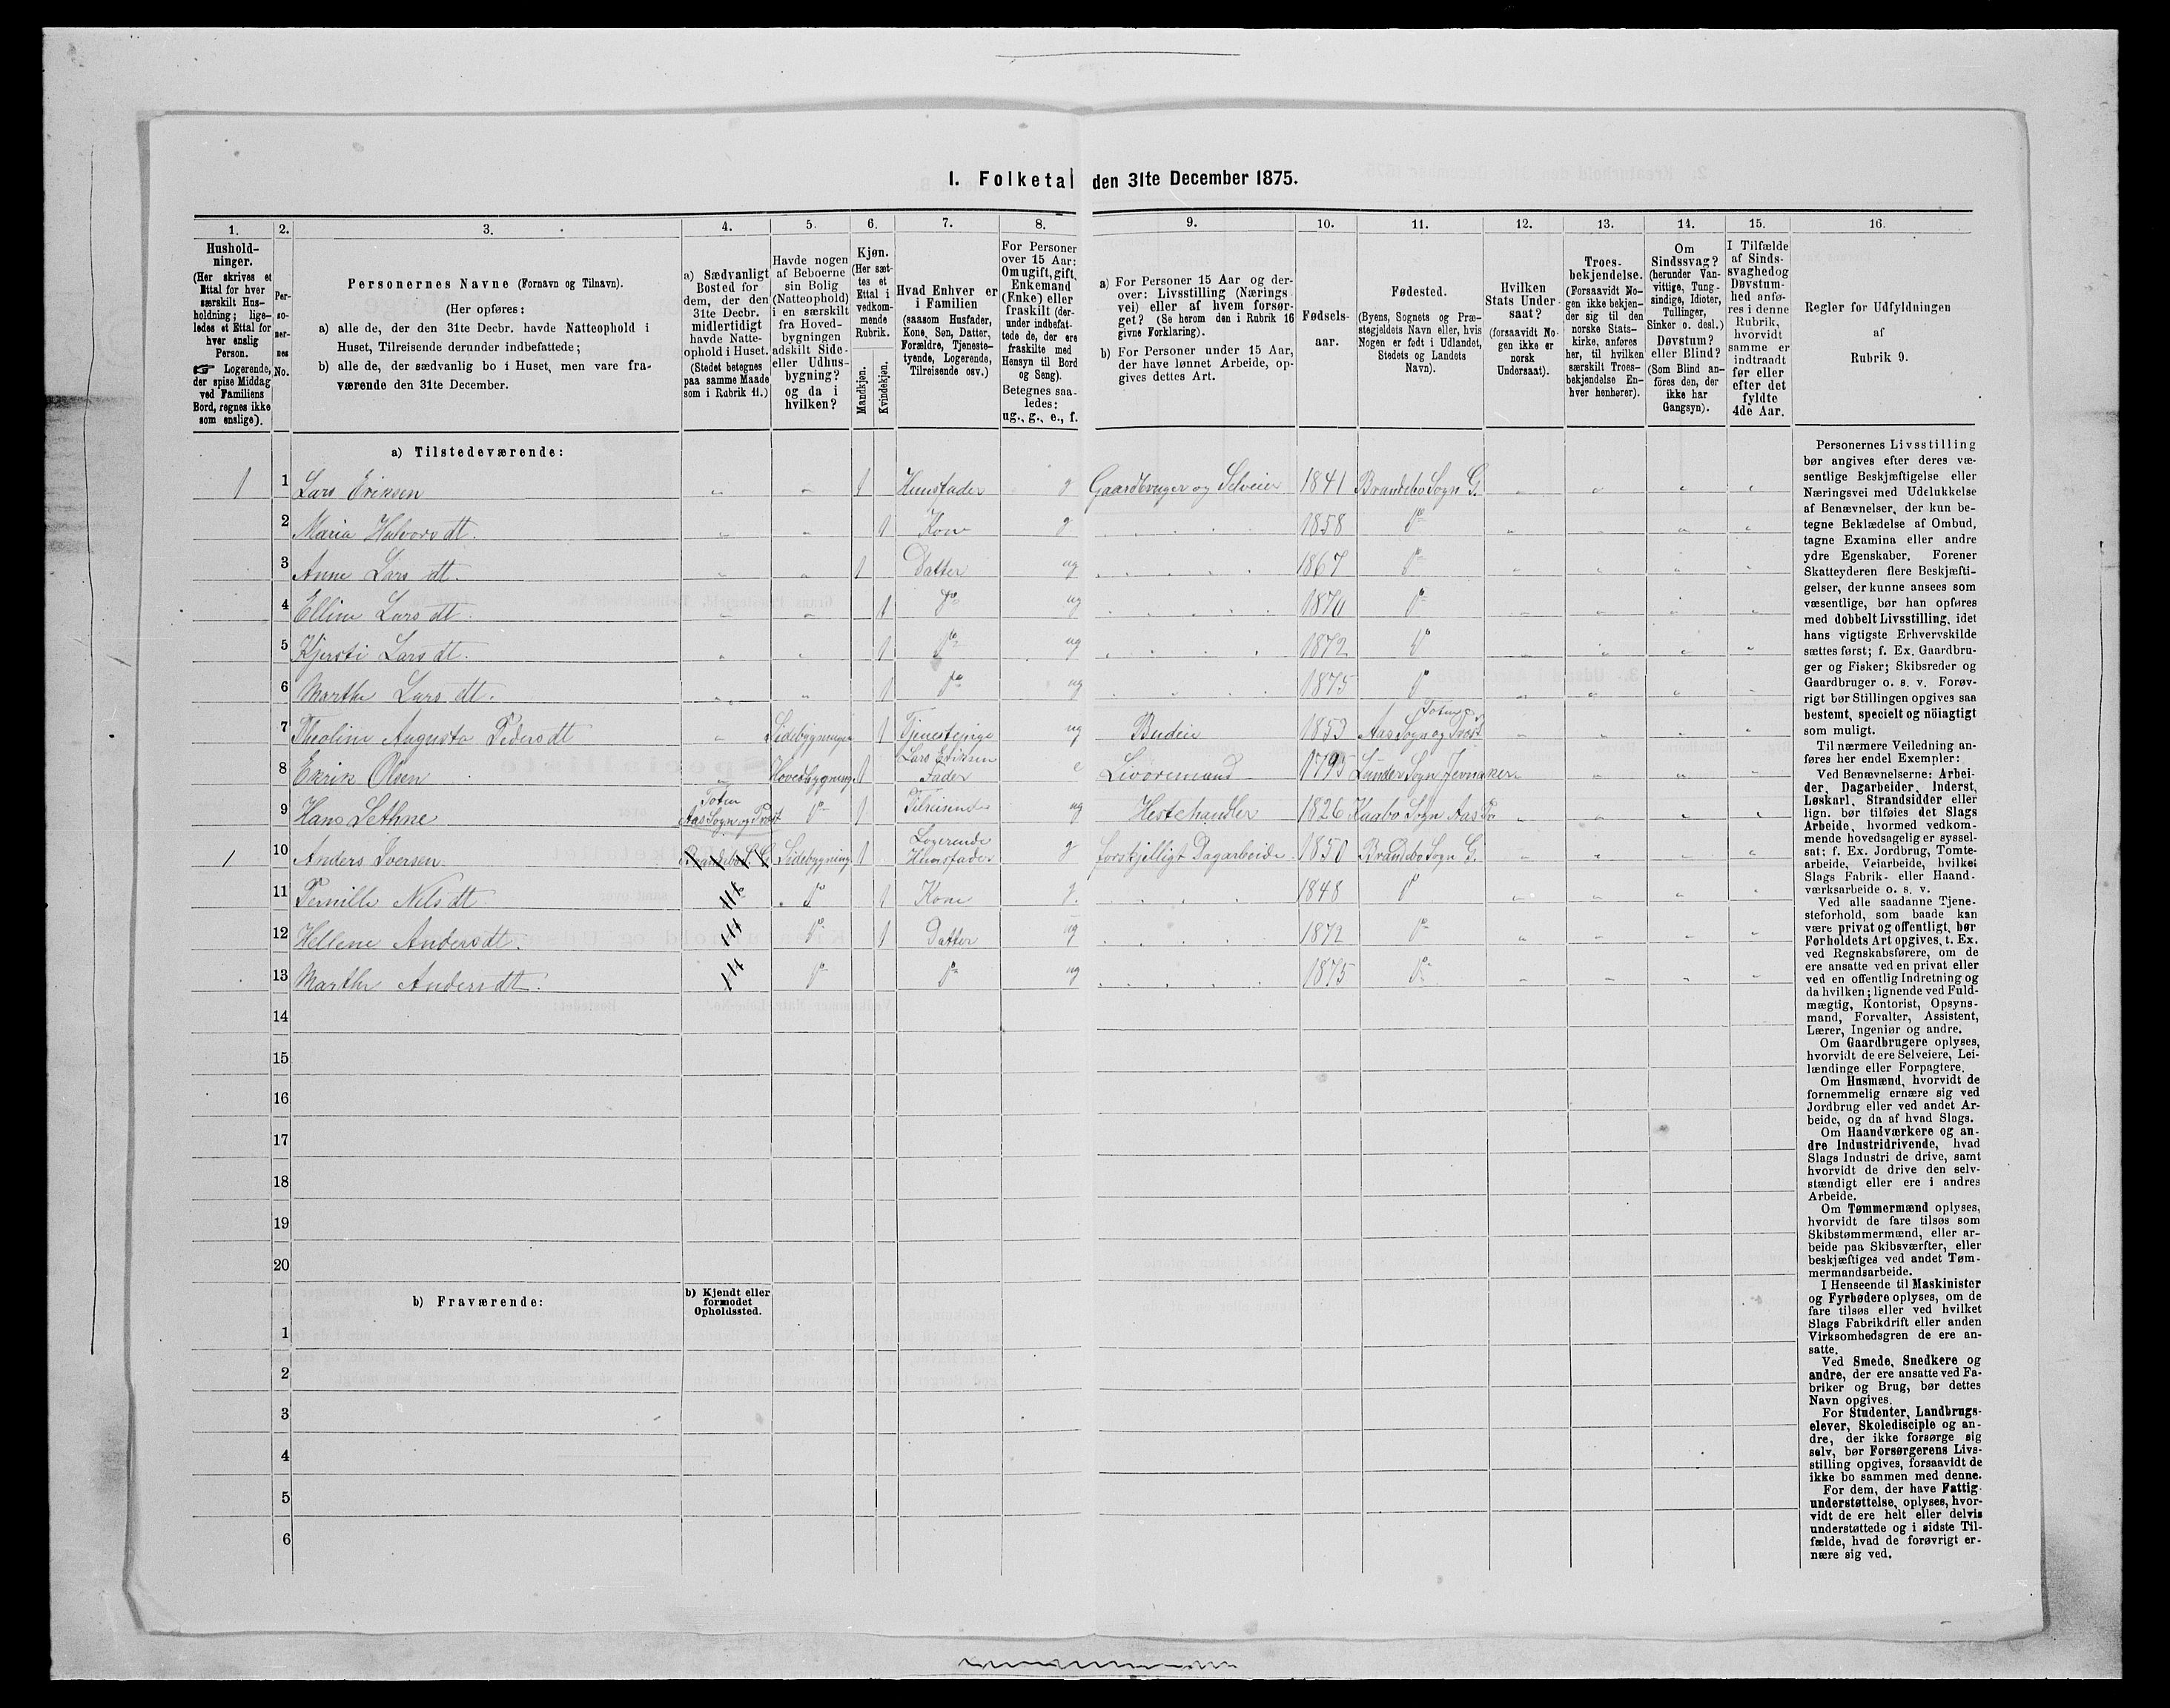 1. Folketal den 31te December 1875.
1. 2. 3. 4. 5. 6. 7. 8. 9. 10. 11. 12. 13. 14. 15. 16.
Hushold-
ninger.
(Her skrives et
Ettal for hver
særskilt Hus-
holdning; lige-
ledes et Ettal for
hver enslig
Person.
☞ Logerende,
der spise Middag
ved Familiens
Bord, regnes ikke
som enslige).
Per-
so-
ner-
nes
No.
Personernes Navne (Fornavn og Tilnavn).
(Her opføres:
a) alle de, der den 31te Decbr. havde Natteophold i
Huset, Tilreisende derunder indbefattede;
b) alle de, der sædvanlig bo i Huset, men vare fra-
værende den 31te December.
a) Sædvanligt
Bosted for
dem, der den
31te Decbr.
midlertidigt
havde Natte-
ophold i Huset.
(Stedet betegnes
paa samme Maade
som i Rubrik 11.)
Havde nogen
af Beboerne
sin Bolig
(Natteophold)
i en særskilt
fra Hoved-
bygningen
adskilt Side-
eller Udhus-
bygning?
og da i
hvilken?
Kjøn.
(Her sæt-
tes et
Ettal i
vedkom-
mende
Rubrik.
Mandkjøn.
Kvindekjøn.
Hvad Enhver er
i Familien
(saasom Husfader,
Kone, Søn, Datter,
Forældre, Tjeneste-
tyende, Logerende,
Tilreisende osv.)
For Personer
over 15 Aar:
Om ugift, gift,
Enkemand
(Enke) eller
fraskilt (der-
under indbefat-
tede de, der ere
fraskilte med
Hensyn til Bord
og Seng).
Betegnes saa-
ledes:
ug., g., e., f.
a) For Personer 15 Aar og der-
over: Livsstilling (Nærings-
vei) eller af hvem forsør-
get? (Se herom den i Rubrik 16
givne Forklaring).
b) For Personer under 15 Aar,
der have lønnet Arbeide, op-
gives dettes Art.
Fødsels-
aar.
Fødested.
(Byens, Sognets og Præ-
stegjeldets Navn eller, hvis
Nogen er født i Udlandet,
Stedets og Landets
Navn).
Hvilken
Stats Under-
saat?
(forsaavidt No-
gen ikke er
norsk
Undersaat).
Troes-
bekjendelse.
(Forsaavidt No-
gen ikke bekjen-
der sig til den
norske Stats-
kirke, anføres
her, til hvilken
særskilt Troes-
bekjendelse En-
hver henhører).
Om
Sindssvag?
(herunder Van-
vittige, Tung-
sindige, Idioter,
Tullinger,
Sinker o. desl.)
Døvstum?
eller Blind?
(Som Blind an-
föres den, der
ikke har
Gangsyn).
I Tilfælde
af Sinds-
svaghed og
Døvstum-
hed anfø-
res i denne
Rubrik,
hvorvidt
samme er
indtraadt
før eller
efter det
fyldte
4de Aar.
Regler for Udfyldningen
af
Rubrik 9.
a) Tilstedeværende:
1 1 Lars Eriksen 1 Huusfader g Gaardbruger og Selveier 1841 Brandebo Sogn G.
2 Maria Halvorsdt. 1 Kone g 1858 do
3 Anne Larsdt. 1 Datter ug 1867 do
4 Elline Larsdt. 1 do ug 1870 do
5 Kjersti Larsdt. 1 do ug 1872 do
6 Marthe Larsdt. 1 do ug 1875 do
7 Theoline Augusta Pedersdt Sidebygningen 1 Tjenestepige ug Budeie 1853 Aas Sogn og Præst Toten
8 Erik Olsen Hovedbygning 1 Lars Eriksen Fader e Livøremand 1793 Lunder Sogn Jevnaker
9 Hans Lethne Toten Aas Sogn og Præst do 1 Tilreisende ug Hestehandler 1826 Sogn Aas
1 10 Anders Iversen Brandebo S. G. Sidebygning 1 Logerende Huusfader g forskjelligt Dagarbeide 1850 Brandebo Sogn G.
11 Pernille Nelsdt do 1 Kone g. 1848 do
12 Hellene Andersdt. do 1 Datter ug 1872 do
13 Marthe Andersdt. do do ug 1875 do
14
15
16
17
18
19
20
b) Fraværende:
b) Kjendt eller
formodet
Opholdssted.
1
2
3
4
5
6
Personernes Livsstilling
bør angives efter deres væ-
sentlige Beskjæftigelse eller
Næringsvei med Udelukkelse
af Benævnelser, der kun be-
tegne Beklædelse af Ombud,
tagne Examina eller andre
ydre Egenskaber. Forener
Skatteyderen flere Beskjæfti-
gelser, der kunne ansees som
væsentlige, bør han opføres
med dobbelt Livsstilling, idet
hans vigtigste Erhvervskilde
sættes først; f. Ex. Gaardbru-
ger og Fisker; Skibsreder og
Gaardbruger o. s. v. Forøv-
rigt bør Stillingen opgives saa
bestemt, specielt og nöiagtigt
som muligt.
Til nærmere Veiledning an-
føres her endel Exempler:
Ved Benævnelserne: Arbei-
der, Dagarbeider, Inderst,
Løskarl, Strandsidder eller
lign. bør tilføies det Slags
Arbeide, hvormed vedkom-
mende hovedsagelig er syssel-
sat; f. Ex. Jordbrug, Tomte-
arbeide, Veiarbeide, hvilket
Slags Fabrik- eller Haand-
værksarbeide o. s. v.
Ved alle saadanne Tjene-
steforhold, som baade kan
være privat og offentligt, bør
Forholdets Art opgives, t. Ex.
ved Regnskabsførere, om de
ere ansatte ved en privat eller
ved en offentlig Indretning og
da hvilken; lignende ved Fuld-
mægtig, Kontorist, Opsyns-
mand, Forvalter, Assistent,
Lærer, Ingeniør og andre.
Om Gaardbrugere oplyses,
hvorvidt de ere Selveiere, Lei-
lændinge eller Forpagtere.
Om Husmænd, hvorvidt de
fornemmelig ernære sig ved
Jordbrug eller ved andet Ar-
beide, og da af hvad Slags.
Om Haandværkere og an-
dre Industridrivende, hvad
Slags Industri de drive, samt
hvorvidt de drive den selv-
stændigt eller ere i andres
Arbeide.
Om Tømmermænd oplyses,
hvorvidt de fare tilsøs som
Skibstømmermænd, eller ar-
beide paa Skibsværfter, eller
beskjæftiges ved andet Tøm-
mermandsarbeide.
I Henseende til Maskinister
og Fyrbødere oplyses, om de
fare tilsøs eller ved hvilket
Slags Fabrikdrift eller anden
Virksomhedsgren de ere an-
satte.
Ved Smede, Snedkere og
andre, der ere ansatte ved Fa-
briker og Brug, bør dettes
Navn opgives.
For Studenter, Landbrugs-
elever, Skoledisciple og an-
dre, der ikke forsørge sig
selv, bør Forsørgerens Livs-
stilling opgives, forsaavidt de
ikke bo sammen med denne.
For dem, der have Fattig-
understøttelse, oplyses, hvor-
vidt de ere helt eller delvis
understøttede og i sidste Til-
fælde, hvad de forøvrigt er-
nære sig ved.